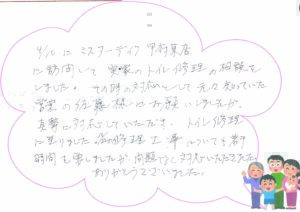 4/10に ミスタデイク 甲府東店
に訪問して 実家のトイレ修理の相談を
しました。その時の対応として元々知っていた
営業の佐藤様にお願いしましたが、
真摯に対応していただき、トイレ修理
に至りました。 の修理工事についても若干
時間を要しましたが 問題なく対応いただきました。
ありがとうございました。